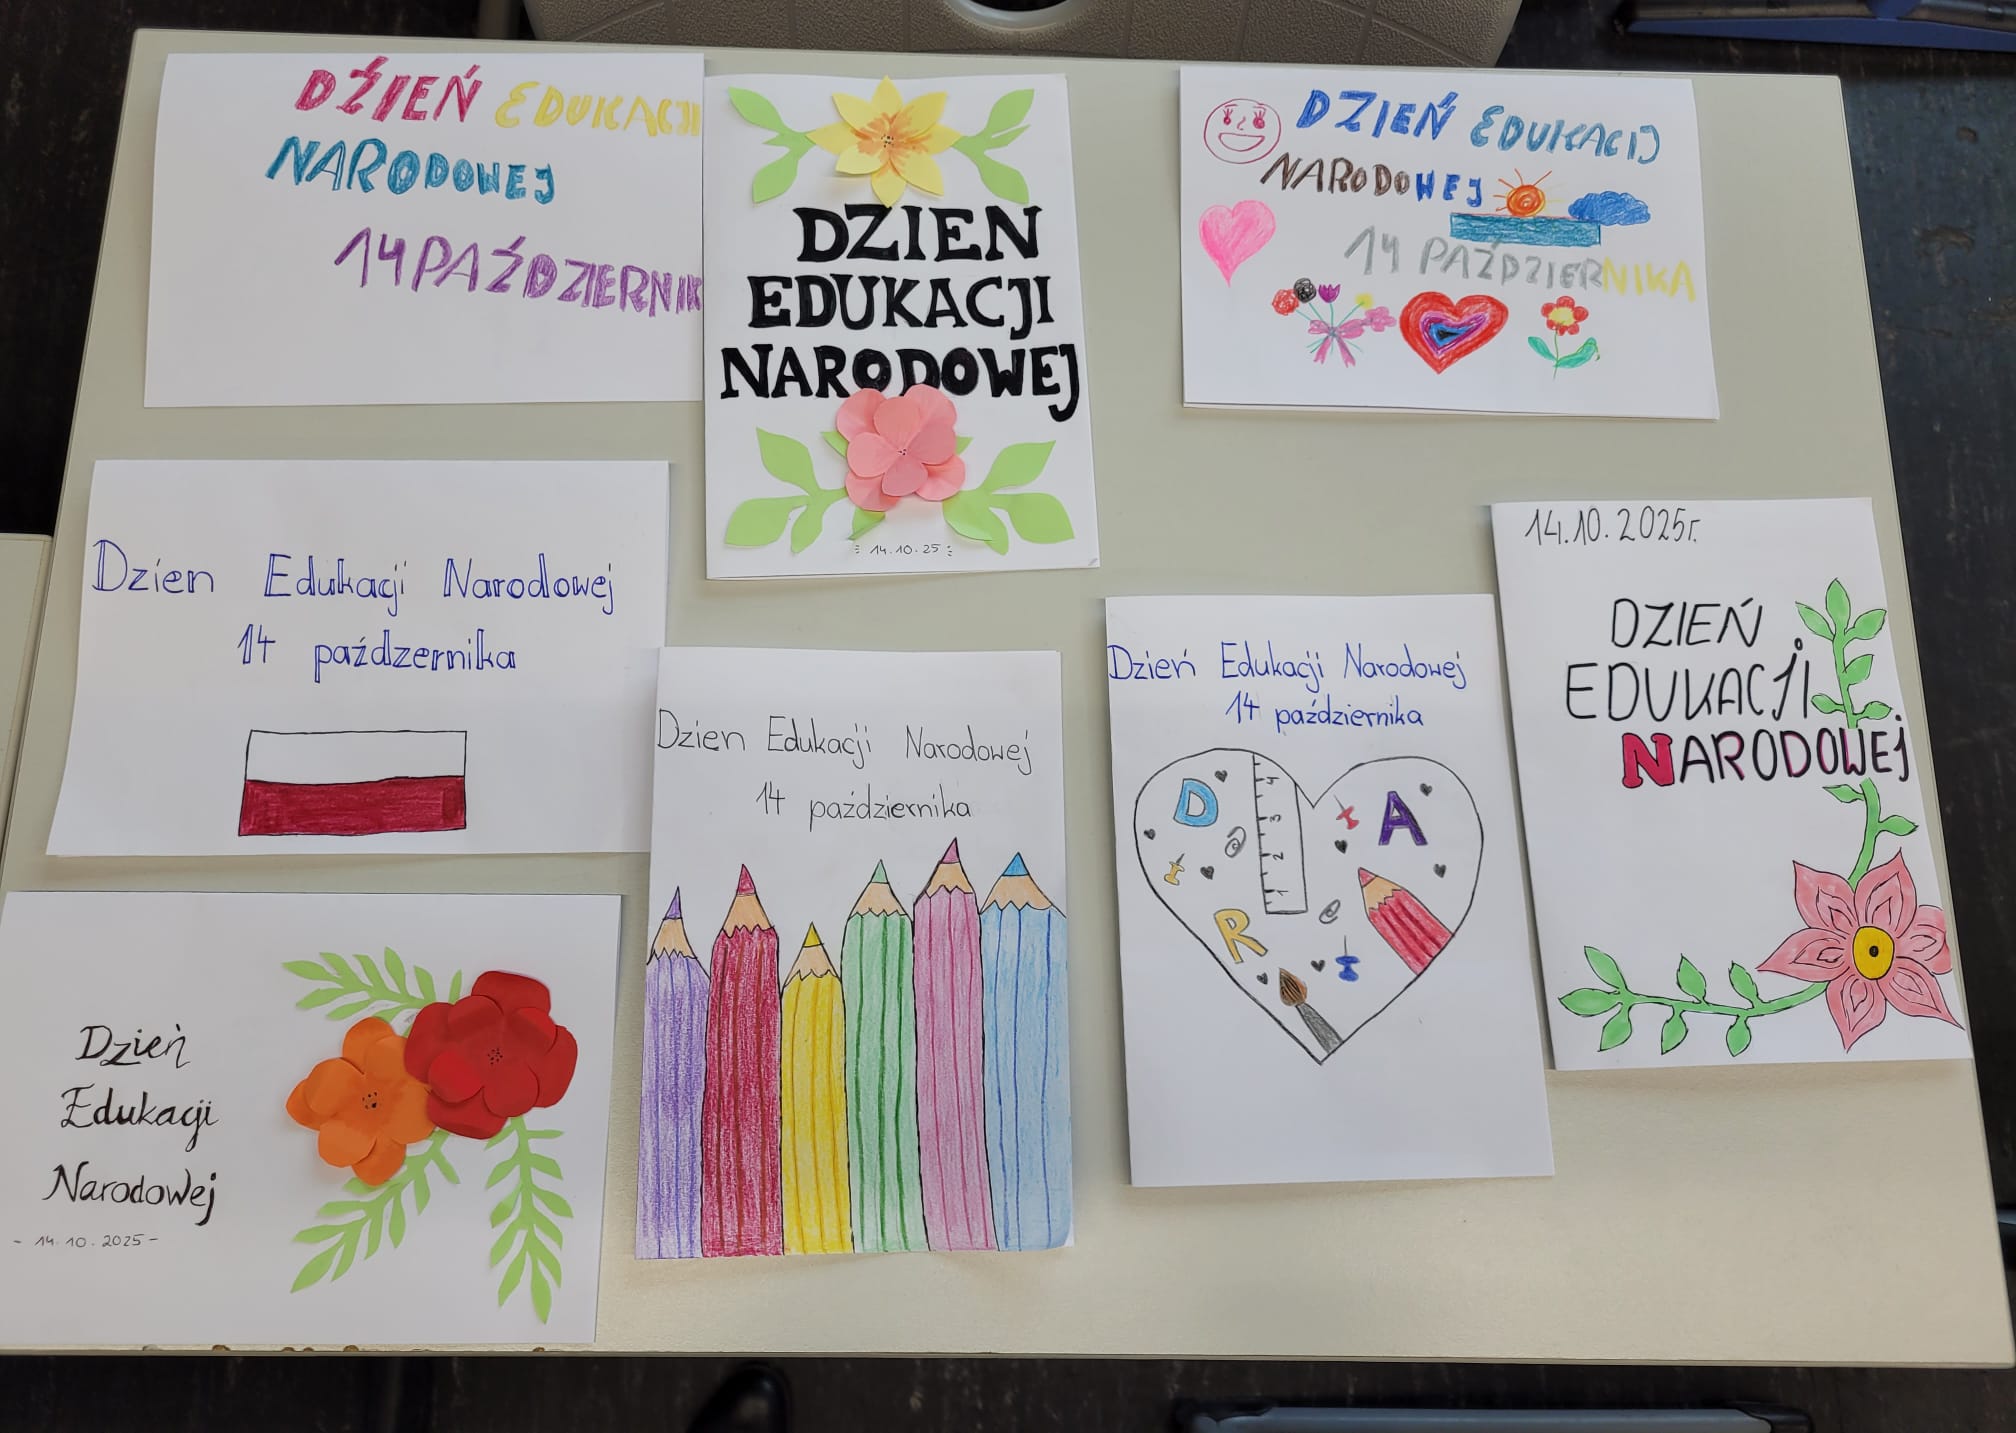 DŹIEŃ EDUKACJI
NARODOWEJ
14 PAŹDZIERNIK
DZIEN
EDUKACJI
NARODOWEJ
14.10.25
DZIEŃ EDUKACIJ
NARODOWEJ
14 PAŹDZIERNIKA
Dzien Edukacji Narodowej
14 paździzernika
14.10.2025r.
DZIEŃ
EDUKACJI
NARODOWEJ
Dzien Edukacji Narodowej
14 października
Dzień Edukacji Narodowej
14 października
D
A
R
4
3
2
1
Dzień
Edukacji
Narodowej
- 14.10.2025 -